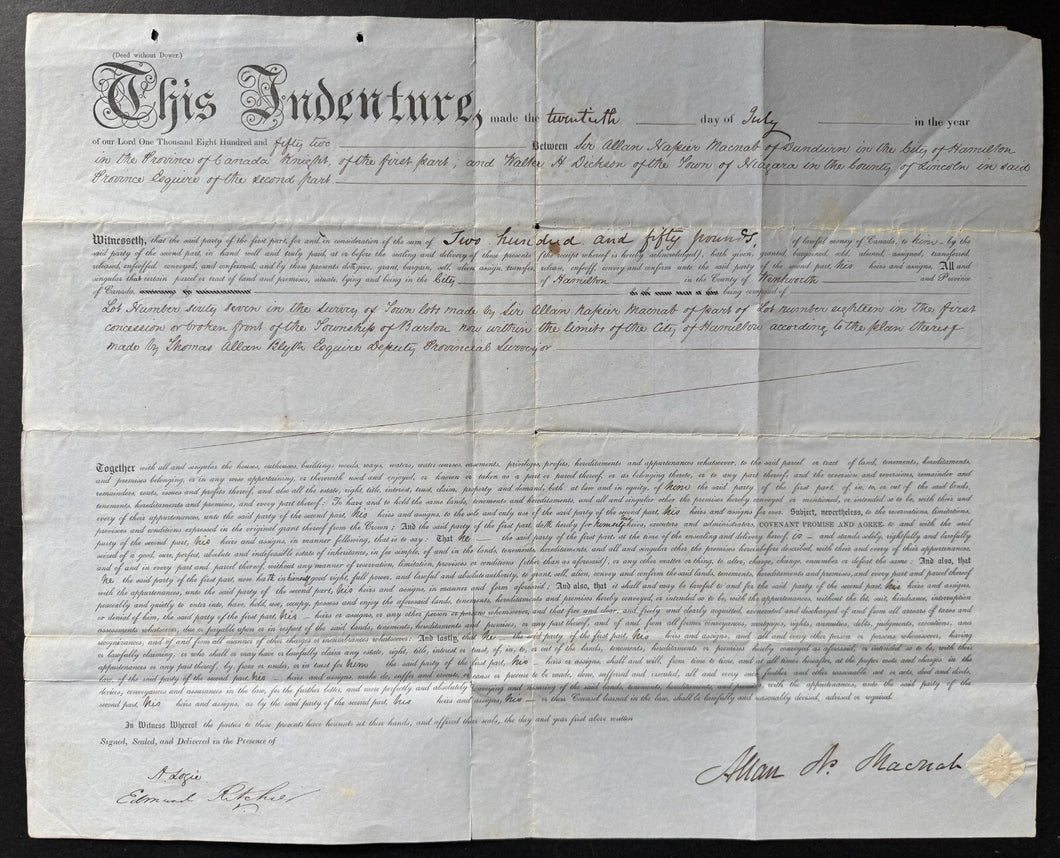 (Deed without Dower.)
This Indenture, made the twentieth day of July in the year
of our Lord One Thousand Eight Hundred and fifty two Between Sir Allan Napier Macnab of Dundurn in the City of Hamilton
in the Province of Canada Knight, of the first part; and Walter H Dickson of the Town of Niagara in the County of Lincoln in said
Province Esquire of the second part
Witnesseth, that the said party of the first part, for and in consideration of the sum of Two hundred and fifty pounds, of lawful money of Canada, to him by the
said party of the second part, in hand well and truly paid, at or before the sealing and delivery of these presents (the receipt whereof is hereby acknowledged), hath given, granted, bargained, sold, aliened, assigned, transferred,
released, enfeoffed, conveyed, and confirmed, and by these presents doth give, grant, bargain, sell, alien, assign, transfer, release, enfeoff, convey and confirm unto the said party of the second part, his heirs and assigns, All and
singular that certain parcel or tract of land and premises, situate, lying and being in the City of Hamilton in the County of Wentworth and Province
of Canada, being composed of
Lot Number sixty seven in the survey of Town lots made by Sir Allan Napier Macnab of part of Lot number eighteen in the first
concession or broken front of the Township of Barton now within the limits of the City of Hamilton according to the plan thereof
made by Thomas Allan Blyth Esquire Deputy Provincial Surveyor
Together with all and singular the houses, outhouses, buildings, woods, ways, waters, water-courses, easements, privileges, profits, hereditaments and appurtenances whatsoever, to the said parcel or tract of land, tenements, hereditaments,
and premises belonging, or in any wise appertaining, or therewith used and enjoyed, or known or taken as a part or parcel thereof, or as belonging thereto, or to any part thereof, and the reversion and reversions, remainder and
remainders, rents, issues and profits thereof, and also all the estate, right, title, interest, trust, claim, property and demand, both at law and in equity, of him the said party of the first part, of, in, to, or out of the said lands,
tenements, hereditaments and premises, and every part thereof: To have and to hold the same lands, tenements and hereditaments, and all and singular other the premises hereby conveyed or mentioned, or intended so to be, with their and
every of their appurtenances, unto the said party of the second part, his heirs and assigns, to the sole and only use of the said party of the second part his heirs and assigns for ever. Subject, nevertheless, to the reservations, limitations,
provisoes and conditions expressed in the original grant thereof from the Crown: And the said party of the first part doth hereby for himself his heirs, executors and administrators, COVENANT PROMISE AND AGREE, to and with the said
party of the second part, his heirs and assigns, in manner following, that is to say: That he the said party of the first part, at the time of the ensealing and delivery hereof, is and stands solely, rightfully and lawfully
seized of a good, sure, perfect, absolute and indefeasible estate of inheritance, in fee simple, of and in the lands, tenements, hereditaments, and all and singular other the premises hereinbefore described, with their and every of their appurtenances,
and of and in every part and parcel thereof, without any manner of reservation, limitation, provisoes or conditions (other than as aforesaid), or any other matter or thing, to alter, charge, change, encumber or defeat the same: And also, that
he the said party of the first part, now hath in himself good right, full power, and lawful and absolute authority, to grant, sell, alien, convey and confirm the said lands, tenements, hereditaments and premises, and every part and parcel thereof
with the appurtenances, unto the said party of the second part, his heirs and assigns, in manner and form aforesaid: And also, that it shall and may be lawful to and for the said party of the second part his heirs and assigns,
peaceably and quietly to enter into, have, hold, use, occupy, possess and enjoy the aforesaid lands, tenements, hereditaments and premises hereby conveyed, or intended so to be, with the appurtenances, without the let, suit, hindrance, interruption
or denial of him, the said party of the first part, his heirs or assigns, or any other person or persons whomsoever, and that free and clear, and freely and clearly acquitted, exonerated and discharged of and from all arrears of taxes and
assessments whatsoever, due or payable upon or in respect of the said lands, tenements, hereditaments and premises, or any part thereof, and of and from all former conveyances, mortgages, rights, annuities, debts, judgments, executions, and
recognizances, and of and from all manner of other charges or incumbrances whatsoever: And lastly, that he the said party of the first part, his heirs and assigns, and all and every other person or persons whomsoever, having
or lawfully claiming, or who shall or may have or lawfully claim any estate, right, title, interest or trust, of, in, to, or out of the lands, tenements, hereditaments or premises hereby conveyed as aforesaid, or intended so to be, with their
appurtenances or any part thereof, by, from or under, or in trust for him the said party of the first part, his heirs or assigns, shall and will, from time to time, and at all times hereafter, at the proper costs and charges in the
law of the said party of the second part his heirs and assigns, make, do, suffer and execute, or cause or procure to be made, done, suffered and executed, all and every such further and other reasonable act or acts, deed and deeds,
devices, conveyances and assurances in the law, for the further, better, and more perfectly and absolutely conveying and assuring of the said lands, tenements, hereditaments, and premises with the appurtenances, unto the said party of the
second part, his heirs and assigns, as by the said party of the second part, his heirs and assigns, his or their Counsel learned in the law, shall be lawfully and reasonably devised, advised or required.
In Witness Whereof the parties to these presents have hereunto set their hands, and affixed their seals, the day and year first above written
Signed, Sealed, and Delivered in the Presence of
A. Logie
Edmund Ritchie
Allan N. Macnab